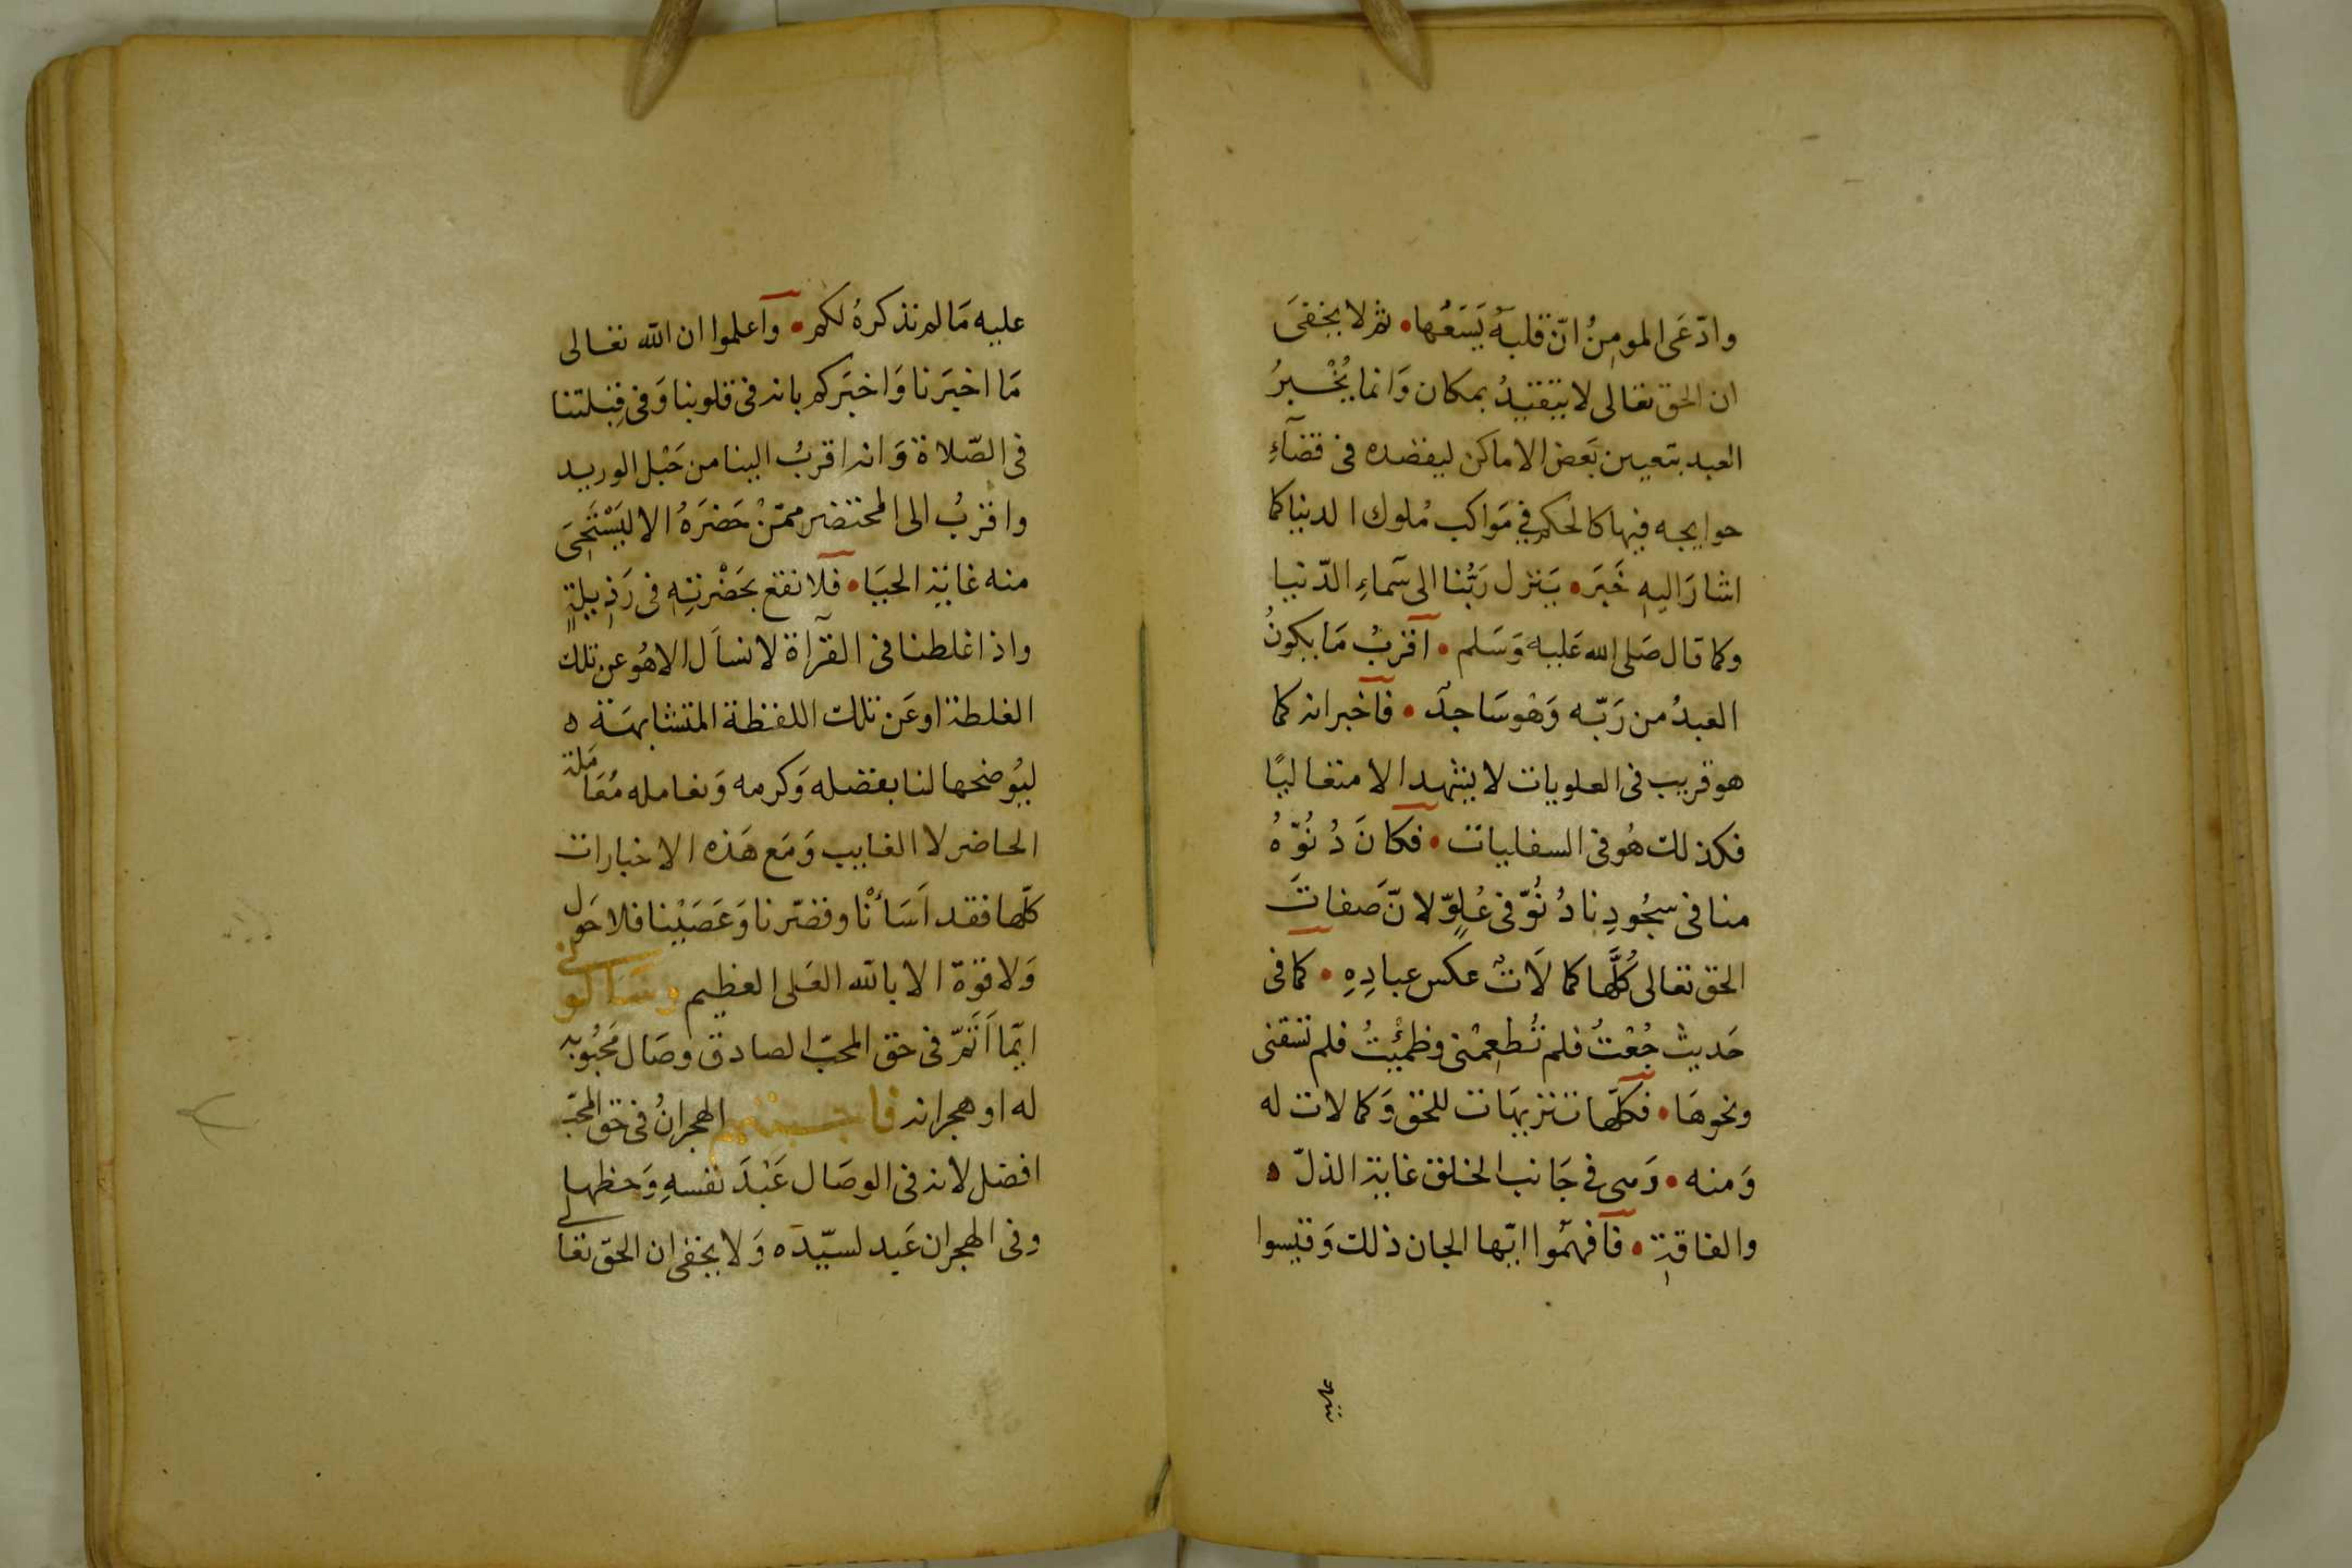 وادّعَى المومِنُ انّ قلبَهُ يَسَعُها • ثم لا يخفَى
ان الحق تعالى لا يتقيّدُ بمكان وَانما يُخْبرُ
العبد بتعيين بَعض الاماكن ليقصده فى قضآءِ
حوايجه فيها كالحكم في مَواكب مُلوك الدنيا كما
اشارَ اليهِ خَبَر • يَنزل رَبُّنا الى سَماءِ الدّنيا
وكما قال صَلى الله عَليه وَسَلم • اقربُ مَا يكونُ
العَبدُ من رَبّه وَهو سَاجدٌ • فاخبر انه كما
هو قريب فى العلويات لا يشهد الا متعاليًا
فكذلك هُو فى السفليات • فكانَ دُنُوّهُ
منا فى سجُودِنا دُنُوّ فى عُلوّ لانّ صَفاتَ
الحق تعالى كُلَّها كمالَاتٌ عكس عبادِهِ • كما فى
حَديث جُعْتُ فلم تُطعِمْنى وظمئِتُ فلم تسقنى
ونحوهَا • فكلّها تنزيهَات للحق وَكمالات له
وَمنه • وَهى في جَانب الخلق غاية الذلّ ه
والفاقةِ • فافهمُوا ايّها الجان ذلك وَقيسوا
عليه
عليه مَا لم نذكرهُ لكم • واعلموا ان الله تعالى
مَا اخبَرنا وَاخبَركم بانه فى قلوبنا وَفى قِبلتنا
فى الصّلاة وَانه اقربُ الينا من حَبْل الوريد
واقربُ الى المحتضر ممّنْ حَضرَهُ الا ليَسْتَحِىَ
منه غاية الحيَا • فلا نقع بحَضْرتِهِ فى رَذِيلةٍ
واذا غلطنا فى القرآة لا نسأل الا هُو عن تلك
الغلطة او عَن تلك اللفظة المتشابهَة ه
ليُوضحها لنا بفضله وَكرمه وَنعامله مُعَاملة
الحاضر لا الغايب وَمَع هَذه الاخبارات
كلّها فقد اَسَأنْا وقصّرنا وَعَصَيْنا فلا حَول
وَلا قوّة الا بالله العَلى العظيم وسَالونى
ايّما اَتَمّ فى حَق المحبّ الصادق وصَال مَحبُوبه
له او هجرانه فاجبتهم الهجرانُ فى حَق المحبّ
افضل لانه فى الوصَال عَبْدَ نفسهِ وَحظها
وفى الهجران عَبد لسيّده وَلا يخفى ان الحَق تعالى